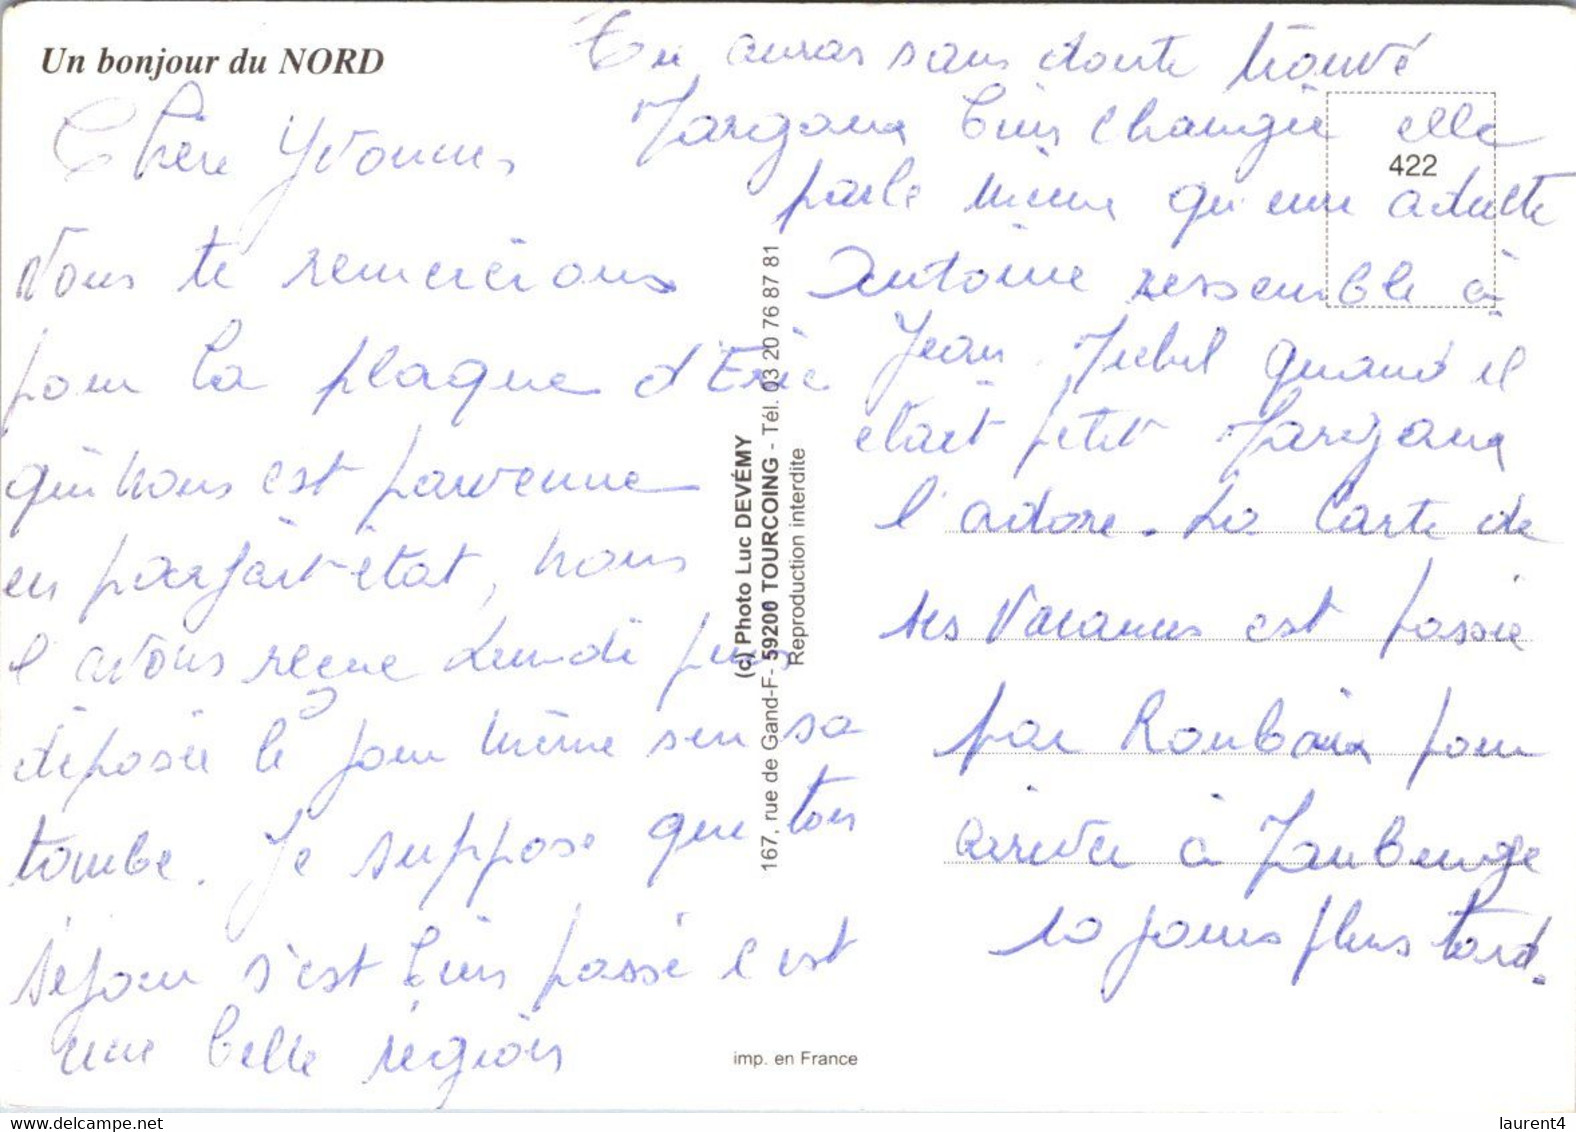 Un bonjour du NORD
Chère Yvonne,
Nous te remercions
pour la plaque d'Eric
qui nous est parvenue
en parfait état, nous
l'avons reçue Lundi puis
déposée le jour même sur sa
tombe. Je suppose que ton
séjour s'est bien passé c'est
une belle région
Tu auras sans doute trouvé
Morgana bien changée elle
parle mieux qu'une adulte
Antoine ressemble à
Jean-Michel quand il
était petit Morgana
l'adore. La Carte de
tes Vacances est passée
par Roubaix pour
arriver à Maubeuge
10 jours plus tard.
422
(c) Photo Luc DEVÉMY
167, rue de Gand-F- 59200 TOURCOING - Tél. 03 20 76 87 81
Reproduction interdite
imp. en France
laurent4